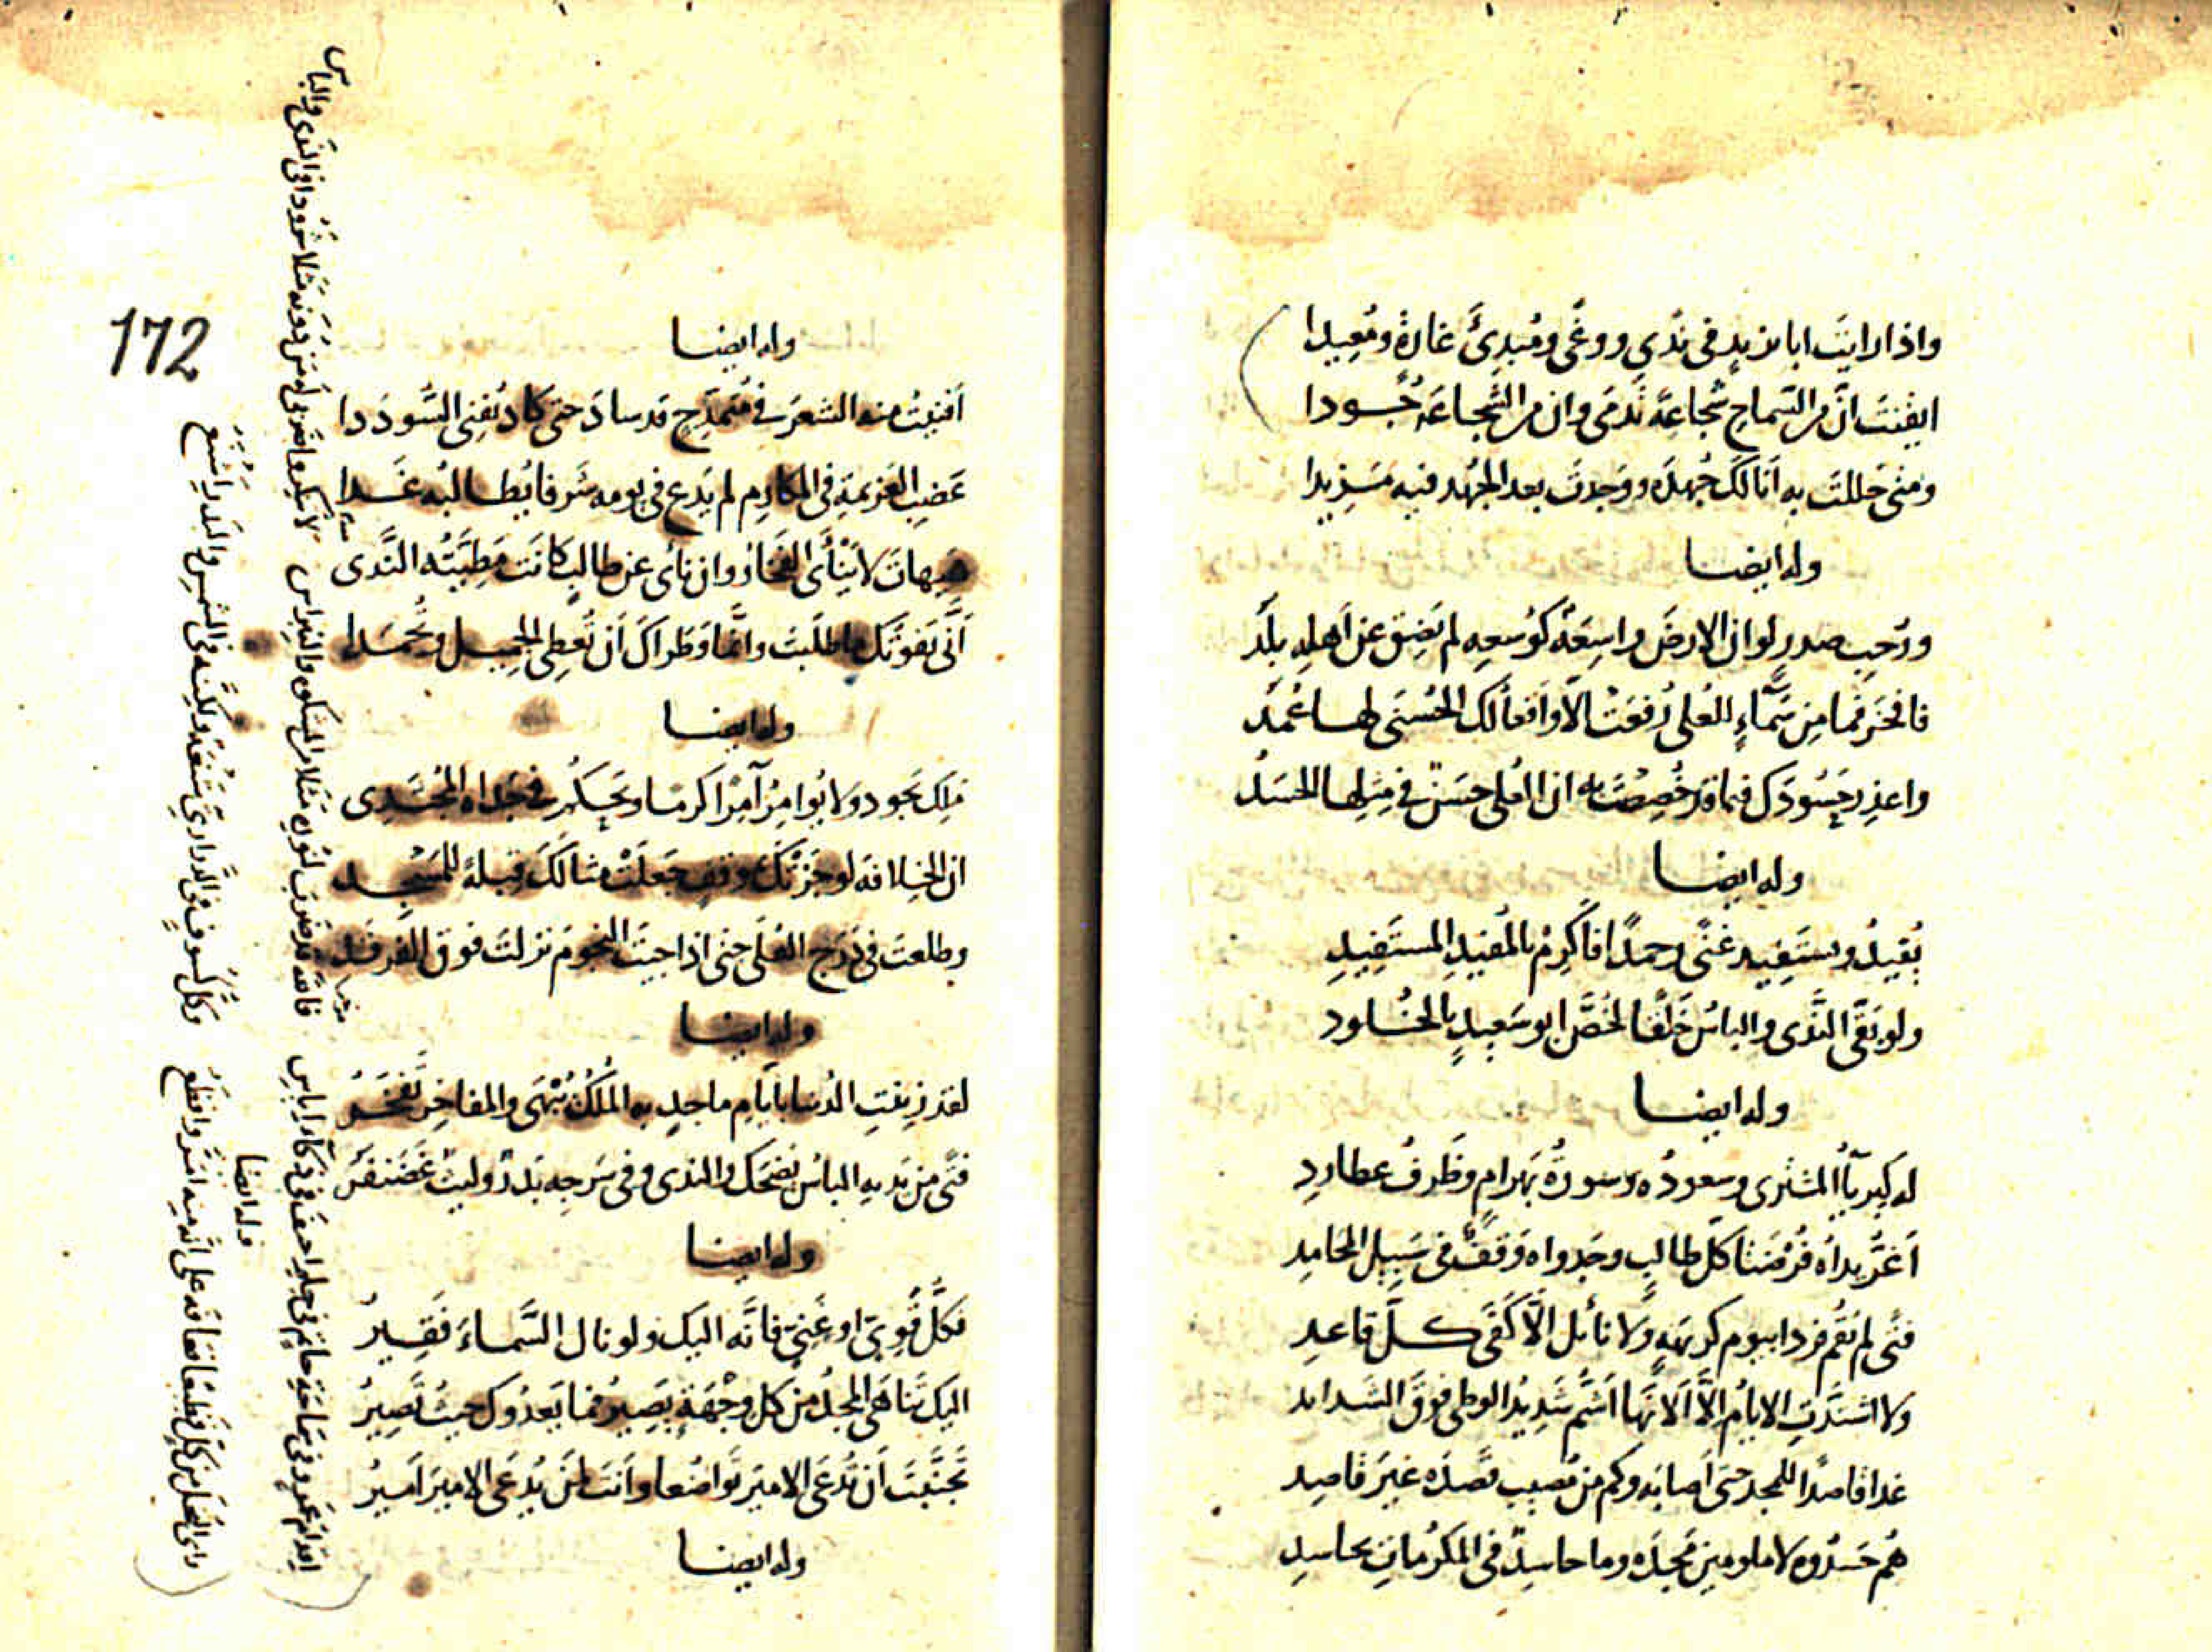 واذا رايتَ ابا يزيدٍ في نَدًى ووغًى ومُبدِئَ غارةٍ ومُعيدا
ايقنتَ انّ من السّماحِ شجاعةً تُدمى وان من الشجاعة جُودا
ومتى حللتَ به أنالكَ جُهدَه ووجدتَ بعد الجُهد فيه مَزيدا
وله ايضا
ورحيب صدرٍ لو ان الارضَ واسِعَةٌ كوُسعِه لم يَضِق عن اهلِه بلَدُ
فافخَر فما مِن سَمآءٍ للعُلى رُفعَت الّا وافعالك الحُسنى لها عُمَدُ
واعذِر حَسُودَك فيما قد خُصِصتَ به ان العُلى حَسَنٌ في مِثلِها الحَسَدُ
وله ايضا
يُفيدُ ويستفيد غنًى وحمدًا فاكرِم بالمُفيدِ المستَفيدِ
ولو بَقَّى النَّدى والباسُ خَلقًا لخُصَّ ابو سَعيدٍ بالخُلود
وله ايضا
له كبريآءُ المشتري وسعودُه وسَورةُ بَهرامٍ وظَرفُ عطاردِ
أغرُّ يداه فُرضَتا كلِّ طالبٍ وجدواه وَقفٌ في سَبيلِ المحامِدِ
فتًى لم يَقُم فردا بيوم كريهةٍ ولا نائل الّا كَفَى كلَّ قاعدِ
ولا اشتدَّتِ الايامُ الّا أَلانَها أشَمُّ شديدُ الوطئ فوقَ الشدايد
غدا قاصدًا للمجد حتى اصابه وكم من مُصيبٍ قصدَه غيرَ قاصِد
هُم حَسَدُوه لا ملومين مجدَه وما حاسِدٌ في المكرُماتِ بحاسِدِ
172
وله ايضا
أفنيتُ منه الشعرَ في مُتَمدَّحٍ قد ساد حتى كاد يُفنى السُّودَدا
عَضبِ العزيمةِ في المكارم لم يَدَع في يومه شَرفا يُطالبُه غدا
هيهاتَ لا يَنْأى الفَخارُ وان نأى عن طالبٍ كانَت مَطِيَّتُه النَّدى
أنَّى يَفوتك ما طلَبتَ وانّما وَطَراكَ أن تُعطي الجميل وتُحمَدا
وله ايضا
مَلِك يجود ولا يُؤامِرُ آمِرًا كرمًا ويحكُم في جَداه المُجتَدى
ان الخِلافه لو جزَتك بموقفٍ جَعلَت مثالَكَ قبلةً للمسجد
وطلعتَ في دَرَجِ العُلى حتى اذا جيتَ النجومَ نزلتَ فوق الفرقد
وله ايضا
لقد زِينتِ الدُنيا بايّام ماجدٍ به المُلكُ يُبهَى والمفاخِرُ تَفخَرُ
فتًى من يَديه الباسُ يضحك والندى وفي سَرجِه بَدرٌ وليثٌ غَضَنفَرُ
وله ايضا
فكلُّ قويّ او غنيّ فانّه اليك ولو نال السَّماءَ فقيرُ
اليك تَناهَى المجدُ من كلّ وِجهةٍ يَصيرُ فما يَعدُوك حيث تَصيرُ
تجنَّبتَ أن تُدعَى الاميرَ تَواضُعا وأنتَ لمن يُدعَى الاميرَ أميرُ
وله ايضا
اقدام عَمرٍو في سَماحةِ حاتمٍ في حِلم احنفَ في ذكآء اياسِ
لا تنكروا ضَربى له مَن دُونه مَثلا شَرُودا في النَّدى والباسِ
فالله قد ضرب لنُوره مَثلا من المشكوه والنِّبراسِ
وله ايضا
راى البُخلَ من كلٍّ فظيعًا فعافَه على انّه منه امَرُّ وافظعُ
وكلُّ كسوفٍ في الدّراريّ شُنعَةٌ ولكنّه في الشمسِ والبَدرِ أشنعُ